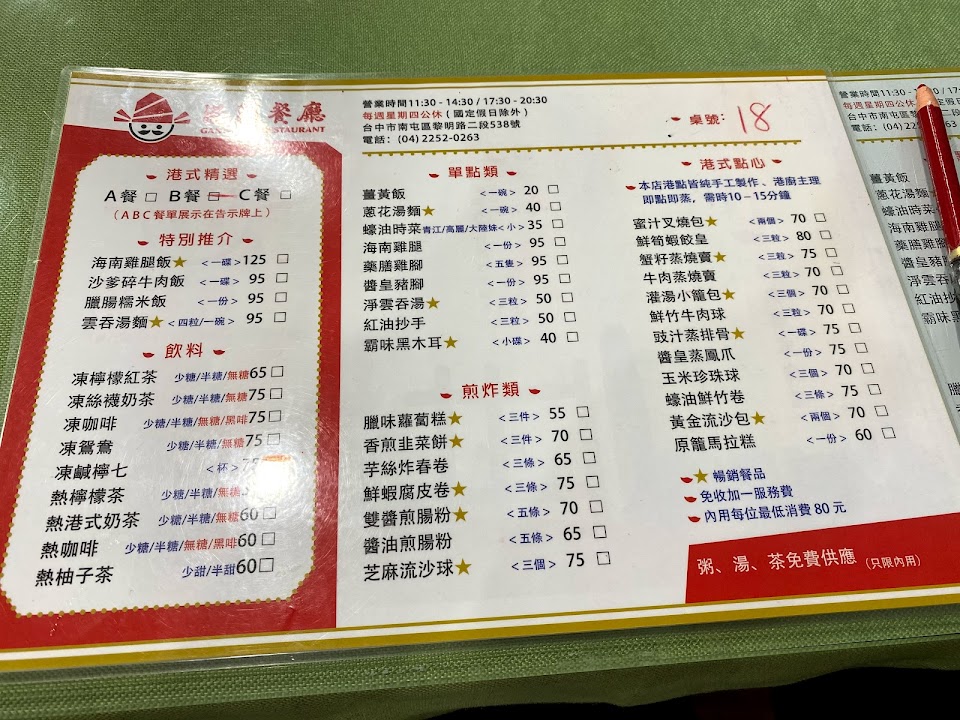 餐廳
RESTAURANT
營業時間11:30 - 14:30 / 17:30 - 20:30
每週星期四公休 ( 國定假日除外 )
台中市南屯區黎明路二段538號
電話: (04) 2252-0263
桌號: 18
港式精選
A餐 □ B餐 □ C餐 □
(ABC餐單展示在告示牌上)
特別推介
海南雞腿飯★ <一碟> 125 □
沙爹碎牛肉飯 <一碟> 95 □
臘腸糯米飯 <一份> 95 □
雲吞湯麵★ <四粒/一碗> 95 □
飲料
凍檸檬紅茶 少糖/半糖/無糖 65 □
凍絲襪奶茶 少糖/半糖/無糖 75 □
凍咖啡 少糖/半糖/無糖/黑咖 75 □
凍鴛鴦 少糖/半糖/無糖 75 □
凍鹹檸七 <杯>
熱檸檬茶 少糖/半糖/無糖
熱港式奶茶 少糖/半糖/無糖 60 □
熱咖啡 少糖/半糖/無糖/黑咖 60 □
熱柚子茶 少甜/半甜 60 □
單點類
薑黃飯 <一碗> 20 □
蔥花湯麵★ <一碗> 40 □
蠔油時菜 青江/高麗/大陸妹 <小> 35 □
海南雞腿 <一份> 95 □
藥膳雞腳 <五隻> 95 □
醬皇豬腳 <一份> 95 □
淨雲吞湯★ <三粒> 50 □
紅油抄手 <三粒> 50 □
霸味黑木耳★ <小碟> 40 □
煎炸類
臘味蘿蔔糕★ <三件> 55 □
香煎韭菜餅★ <三件> 70 □
芋絲炸春卷 <三條> 65 □
鮮蝦腐皮卷★ <三條> 75 □
雙醬煎腸粉★ <五條> 70 □
醬油煎腸粉 <五條> 65 □
芝麻流沙球★ <三個> 75 □
港式點心
本店港點皆純手工製作、港廚主理
即點即蒸，需時10－15分鐘
蜜汁叉燒包★ <兩個> 70 □
鮮筍蝦餃皇 <三粒> 80 □
蟹籽蒸燒賣★ <三粒> 75 □
牛肉蒸燒賣 <三粒> 70 □
灌湯小籠包★ <三個> 70 □
鮮竹牛肉球 <三粒> 70 □
豉汁蒸排骨★ <一碟> 75 □
醬皇蒸鳳爪 <一份> 75 □
玉米珍珠球 <三個> 70 □
蠔油鮮竹卷 <三條> 75 □
黃金流沙包★ <兩個> 70 □
原籠馬拉糕 <一份> 60 □
★ 暢銷餐品
免收加一服務費
內用每位最低消費 80 元
粥、湯、茶免費供應 (只限內用)
營業時間11:30
每週星期四公休
台中市南屯區黎
電話: (04) 2252
薑黃飯
蔥花湯麵
蠔油時菜
海南雞腿
藥膳雞腳
醬皇豬腳
淨雲吞
紅油抄
霸味黑